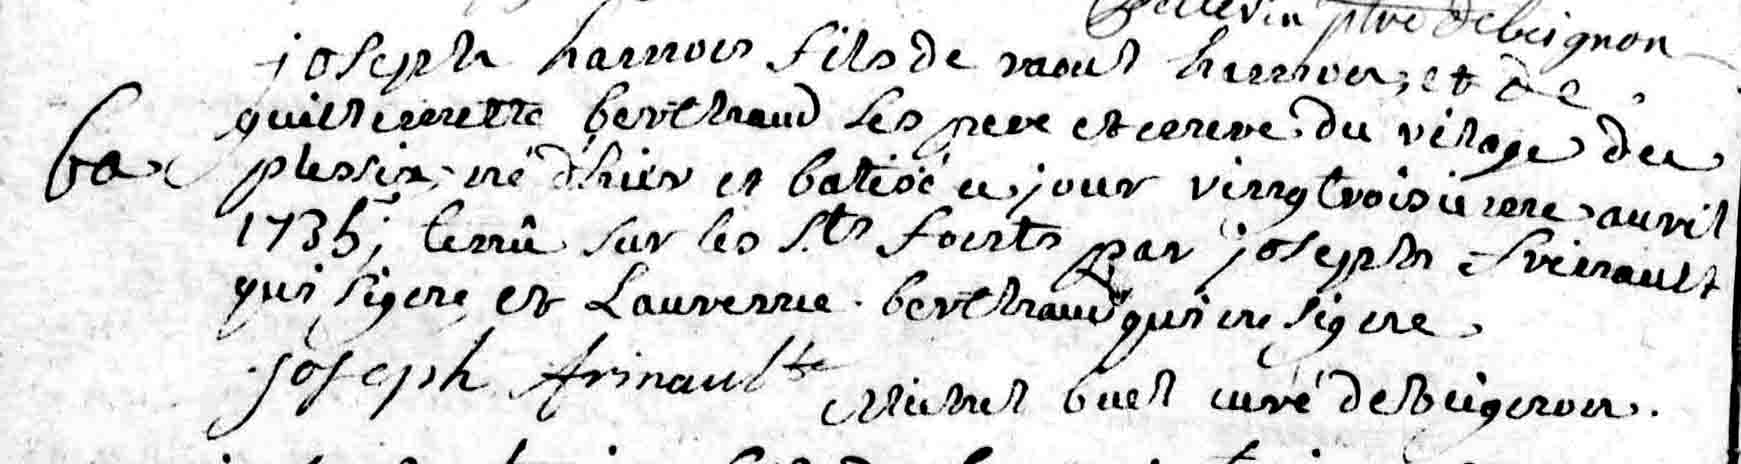 Bellevin ptre de beignon
joseph harnois fils de raoul harnois et de
guillemette berthraud ses pere et mere du vilage du
ba plessix, né d'hier et batisé ce jour vingtroisieme auvril
1735; tenu sur les Sts fonts par joseph frinault
qui signe et Laurence berthraud qui ne signe
joseph frinault
Michel buel curé de beignon.